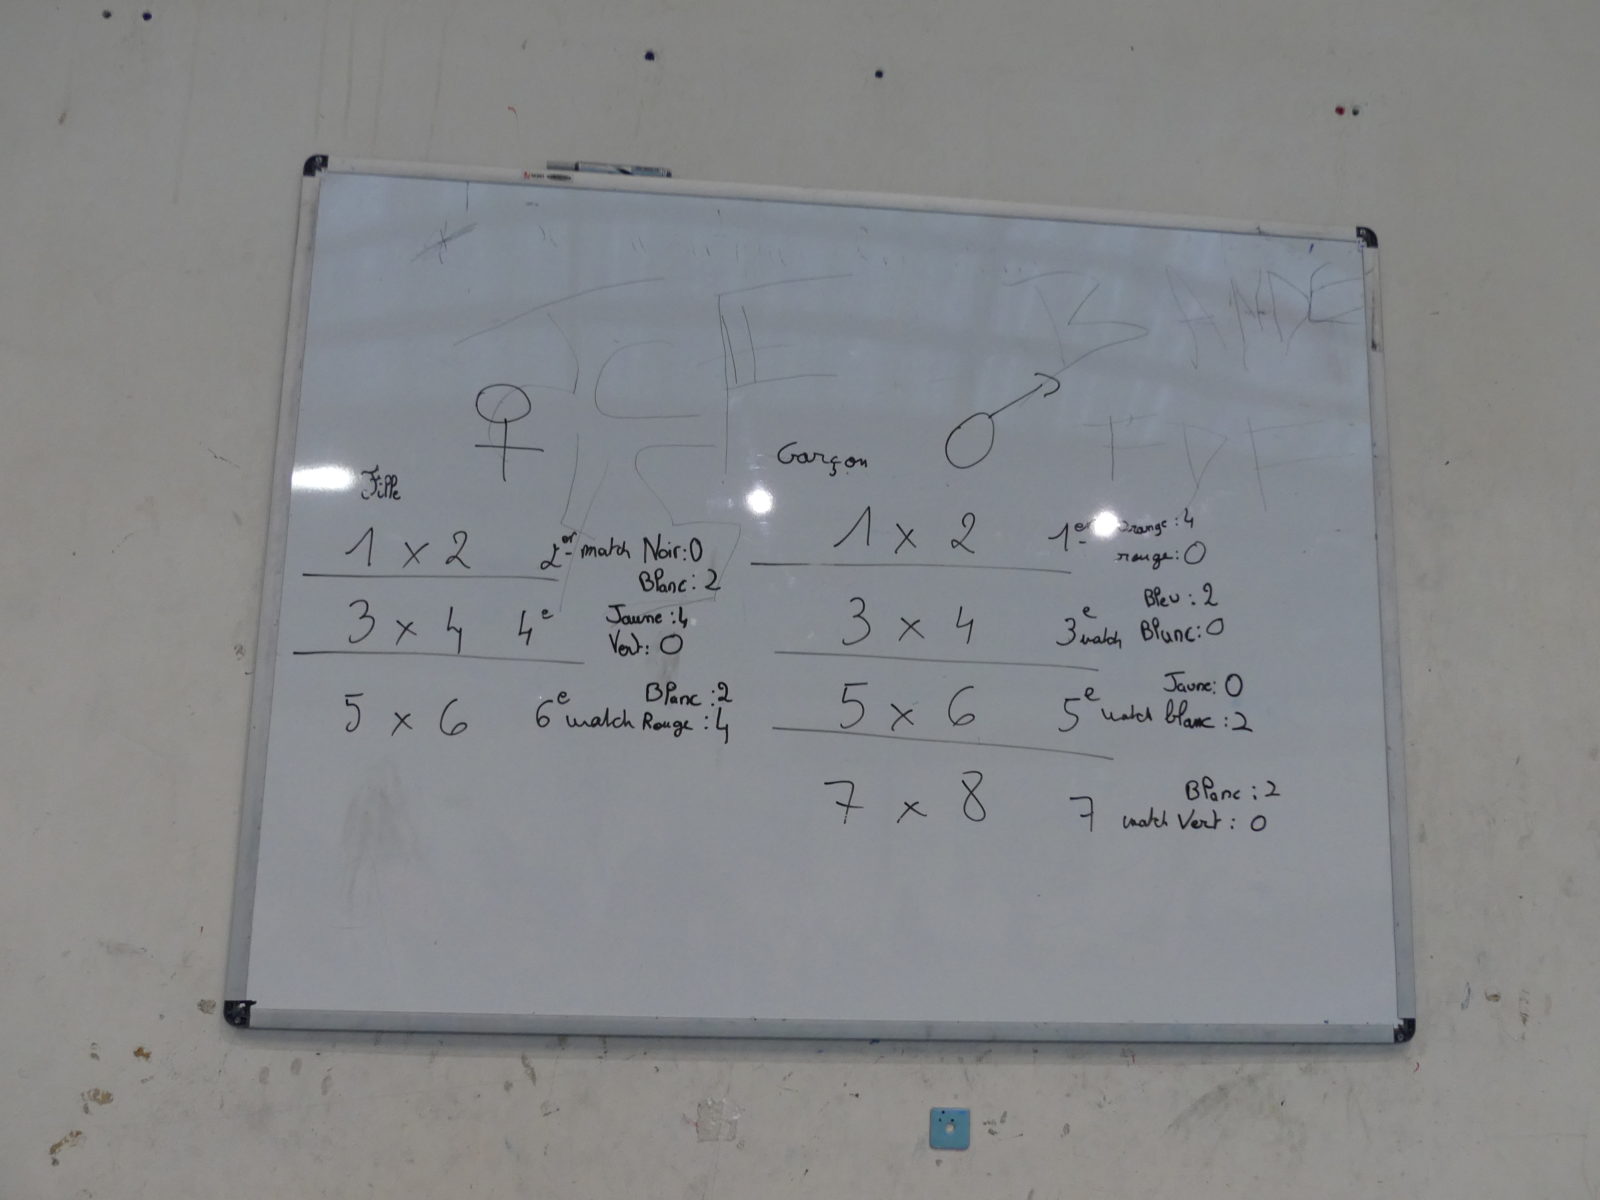 BANDE
FDF
Fille
1 x 2 2er match Noir: 0
Blanc: 2
3 x 4 4e Jaune: 4
Vert: 0
5 x 6 6e match Blanc: 2
Rouge: 4
Garçon
1 x 2 1er orange: 4
rouge: 0
3 x 4 3e match Bleu: 2
Blanc: 0
5 x 6 5e match Jaune: 0
blanc: 2
7 x 8 7 match Blanc: 2
Vert: 0